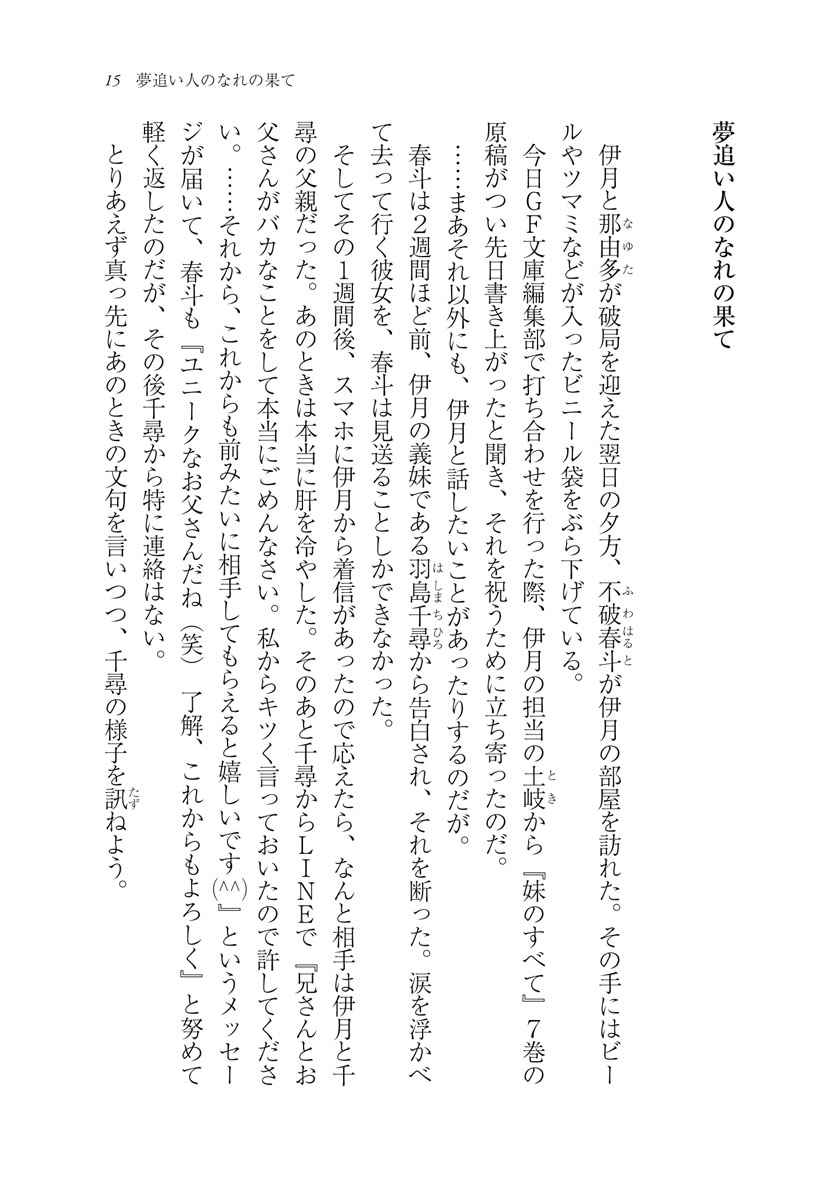 15 夢追い人のなれの果て
夢追い人のなれの果て
伊月と那由多が破局を迎えた翌日の夕方、不破春斗が伊月の部屋を訪れた。その手にはビー
ルやツマミなどが入ったビニール袋をぶら下げている。
今日GF文庫編集部で打ち合わせを行った際、伊月の担当の土岐から『妹のすべて』7巻の
原稿がつい先日書き上がったと聞き、それを祝うために立ち寄ったのだ。
……まあそれ以外にも、伊月と話したいことがあったりするのだが。
春斗は2週間ほど前、伊月の義妹である羽島千尋から告白され、それを断った。涙を浮かべ
て去って行く彼女を、春斗は見送ることしかできなかった。
そしてその1週間後、スマホに伊月から着信があったので応えたら、なんと相手は伊月と千
尋の父親だった。あのときは本当に肝を冷やした。そのあと千尋からLINEで『兄さんとお
父さんがバカなことをして本当にごめんなさい。私からキツく言っておいたので許してくださ
い。……それから、これからも前みたいに相手してもらえると嬉しいです(^^)』というメッセー
ジが届いて、春斗も『ユニークなお父さんだね（笑） 了解、これからもよろしく』と努めて
軽く返したのだが、その後千尋から特に連絡はない。
とりあえず真っ先にあのときの文句を言いつつ、千尋の様子を訊ねよう。